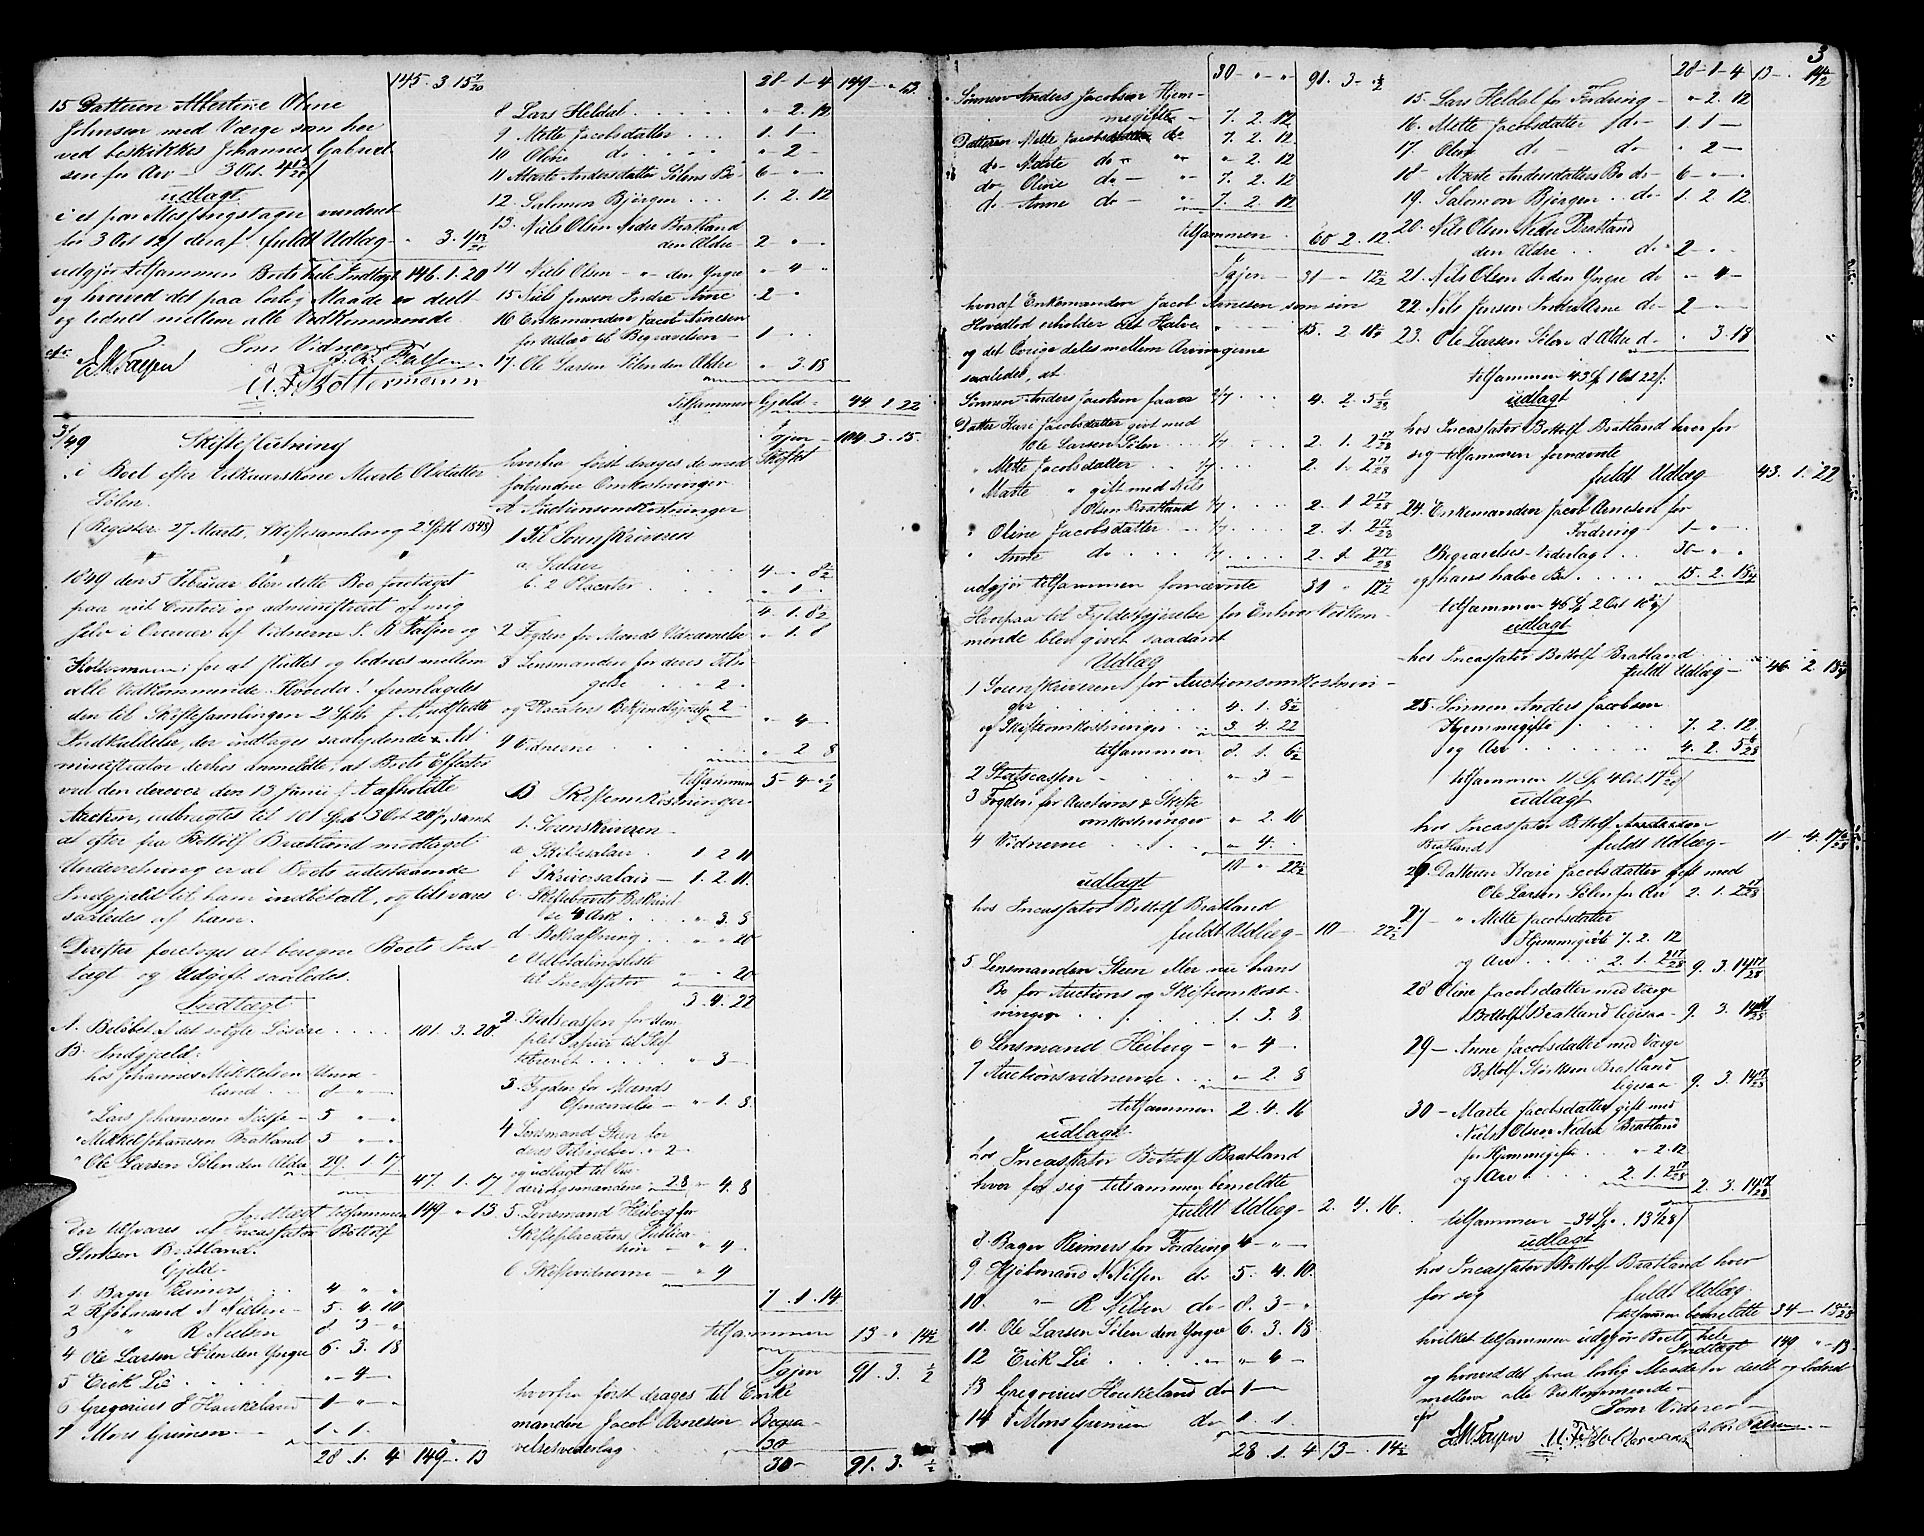 145. 3. 15 7/20
15 Datteren Albertine Oline
Johnsen med Værge som her
ved beskikkes Johannes Gabriel
sen for Arv - 3 Ort
udlagt
i et par Messingstager vurderet
for 3 Ort 12 s deraf fuldt Udlæg - 3.
udgjør tilsammen Boets hele Indtægt 146. 1. 20
og hvorved det paa lovlig Maade er deelt
og lodnet mellem alle Vedkommende
Som Vidner
31/49
Skifteslutning
i Boet efter Vilkaarskone Marte Olsdatter
Sølen.
(Registr. 27 Marts, Skiftesamling 2 Sptb 1848)
1849 den 5 Februar blev dette Boe foretaget
paa mit Contoir og administreret af mig
selv i Overvær af Vidnerne og
Boltermann; for at sluttes og lodnes mellem
alle Vedkommende. Hvorda! fremlagdes
den til Skiftesamlingen 2 Sptb f. A. udstedte
Indkaldelse, der indtages saalydende. Ad
ministrator derhos anmeldte, at Boets Effecter
ved den derover den 13 Junii f. A. afholdte
Auction, udbragtes til 101 Spd 3 Ort 20 s, samt
at efter fra Bottolf Bratland modtaget
Underretning er al Boets udestaaende
Indgjeld til ham indbetalt, og tilsvares
saaledes af ham.
Derefter foretoges at beregne Boets Ind-
tægt og Udgift saaledes.
Indtægt
A. Beløbet af det solgte Løsøre . . . . 101. 3. 20.
B. Indgjeld:
hos Johannes Mikkelsen Unne-
land . . 8 - " -
" Lars Johannesen Næsse - 5 " - "
" Mikkel Johannesen Bratland 5 " - "
" Ole Larsen Sølen den Ældre 29. 1. 17
47. 1. 17
Indtægt tilsammen 149 " 13
der tilsvares af Incassator Bottolf
Størksen Bratland.
Gjeld -
1 Bager Reimers . . 4 " "
2 Kjøbmand N Nielsen - 5. 4. 10
3 " R Nielsen 8 3 - "
4 Ole Larsen Sølen den Yngre 6. 3. 18
5 Erik Lie . . . . " 4 -
6 Gregorius Houkeland 1 - " -
7 Mons Grimen - 1. 1.
28. 1. 4 149 - . 13
28 - 1 - 4 149 - " 13.
8 Lars Heldal . . . . . " 2. 12
9 Mette Jacobsdatter . . . 1. 1 -
10 Oline do . . . . " 2 -
11 Marte Andersdatter Sølens Bo - 6 - " -
12 Salomon Bjørgen . . . 1. 2. 12
13. Niels Olsen Nedre Bratland
den Ældre 2 - " -
14 Niels Olsen - " - den Yngre " 4 "
15 Niels Jensen Indre Arne 2 - "
16 Enkemanden Jacob Arnesen
for Udlæg til Begravelsen - 1 . .
17. Ole Larsen Sølen den Ældre " 3. 18
tilsammen Gjeld - 44. 1. 22
Igjen - 104. 3. 15.
hvorfra først drages de med Skiftet
forbundne Omkostninger
A Auctionsomkostninger
1 Til Sorenskriveren
a. Salair . . . . 4 - 8 1/2
b. 2 Placater . . . . " 1 -
4. 1. 8 1/2
2 Fogden for Mands " 1. 8
3 Lensmanden for deres Tilsi-
gelse . . . " 2 -
og Placatens Bekjendtgjørelse 2 -
" 4 -
4 Vidnerne . . . . . " 2 8
tilsammen 5 - 4 - " 1/2
B Skifteomkostninger
1. Sorenskriveren -
a Skiftesalair . 1 2 11
b Skriversalair - 1. 2. 11.
c. Skiftebrevets Beskrivel
se 4 Ark . . " 3. 8
d. Bekræftning . . " " 20
e Udbetalingsliste
til Incassator " " 20
3. 4. 22
2. Statscassen for stem
plet Papir til Skif
tebrevet . . . . " 3 -
3. Fogden for Mands
" 1. 8.
4 Lensmand Steen for
deres Tilsigelse " 2
og udlagt til Vur
deringsmændene 2. 8 " 4. 8
5. Lensmand Heiberg for
Skifteplacatens Publica
tion - " 4 -
6 Skiftevidnerne - " 4
7. 1. 14
tilsammen 13 - " 14 1/2
Igjen 91. 3. 1/2
hvorfra først drages til Enke
manden Jacob Arnesen Begra-
velsesvederlag . 30
30 - 91. 3. 1/2
30 - " - " 91. 3 - 1/2
Sønnen Anders Jacobsen Hjem-
megifte - 7. 2. 12
Datteren Mette Jacobsdatter do 7. 2. 12
do - Marte do - " " 2. 12
do Oline do - " 7. 2. 12
do - Anne do - " 7. 2. 12
tilsammen 60 2. 12
Igjen - 31 - " 12 1/2
hvoraf Enkemanden Jacob Arnesen som sin
Hovedlod erholder det Halve . 15. 2.
og det Øvrige deles mellem Arvingerne
saaledes, at
Sønnen Anders Jacobsen faaer 2/7 . . . . 4. 2. 5 6/28
Datter Kari Jacobsdatter gift med
Ole Larsen Sølen . . 1/7 . . . 2. 1. 2 17/28
" Mette Jacobsdatter . . 1/7 . . . . 2. 1. 2 17/28
" Marte " gift med Nils
Olsen Bratland 1/7 . . . . 2. 1 2 17/28
" Oline Jacobsdatter . . . 1/7 . . . . 2. 1. 2 17/28
" Anne do . . . . . 1/7 . . . . . 2. 1. 2 17/28
udgjør tilsammen fornævnte 31 " 12 1/2
Hvorpaa til Fyldestgjørelse for Enhver Vedkom-
mende blev givet saadant
Udlæg
1 Sorenskriveren for Auctionsomkostnin-
ger . . . . . . . 4. 1. 8 1/2
og Skifteomkostninger . . 3. 4. 22
tilsammen 8. 1. 6 1/2
2 Statscassen - . . . . " 3 -
3 Fogden for Auctions & Skifte
omkostninger " 2. 16
4 Vidnerne . . . . . " 4 .
10 " 22 1/2
udlagt
hos Incassator Bottolf Bratland
fuldt Udlæg - 10 - 22 1/2
5 Lensmanden Steen eller nu hans
Bo for Auctions og Skifteomkost-
ninger . . . . . . 1. 3. 8
6 Lensmand Heiberg - " 4 -
7 Auctionsvidnerne . . . " 2. 8
tilsammen 2. 4. 16
udlagt
hos Incassator Bottolf Bratland
hver for sig tilsammen bemeldte
fuldt Udlæg - 2. 4. 16.
8. Bager Reimers for Fordring 4 - " -
9. Kjøbmand N Nilsen do 5. 4. 10.
10. " - R Nilsen do - 8. 3 - "
11. Ole Larsen Sølen den Yngre 6. 3. 18
12 Erik Lie . . . . . " - " 4 -
13 Gregorius Houkeland do 1 -
14 Mons Grimen do 1. 1.
28. 1. 4 13 - . 14 1/2
3
28 - 1 - 4 13 - . 14 1/2
15. Lars Heldal for Fordring - " 2. 12
16. Mette Jacobsdatter do - 1. 1 -
17 Oline do - do - " 2 -
18 Marte Andersdatters Bo do - 6 - " -
19. Salomon Bjørgen . . do - 1. 2 12
20. Nils Olsen Nedre Bratland
den Ældre . . do 2 - .
21. Nils Olsen den Yngre do " 4 -
22. Nils Jensen Indre Arne do - 2 - -
23. Ole Larsen Sølen d Ældre do - . 3. 18
tilsammen 43 Sp 1 Ort 22 s:
udlagt
hos Incassator Bottolf Bratland hver for
sig tilsammen fornævnte
fuldt Udlæg 43. 1. 22
24. Enkemanden Jacob Arnesen for
Fordring 1 - " -
Begravelses-Vederlag . . . 30 - " "
og hans halve Bo . . . . . 15. 2.
tilsammen 46 Sp 2 Ort
udlagt
hos Incassator Bottolf Bratland . . .
fuldt Udlæg - 46 2.
25. Sønnen Anders Jacobsen
Hjemmegifte . . . . 7. 2. 12.
og Arv . . . . . . 4. 2. 5 6/28
tilsammen 11 Sp. 4 Ort. 17 6/28
udlagt
hos Incassator Bottolf
Bratland fuldt Udlæg - 11 - 4. 17 6/28
26. Datteren Kari Jacobsdatter gift med
Ole Larsen Sølen for Arv 2. 1. 2 17/28
27 - " Mette Jacobsdatter
Hjemmegifte 7. 2. 12
og Arv . . . . . 2. 1. 2 17/28 9. 3. 14 17/28
28 Oline Jacobsdatter med Værge
Bottolf Bratland ligesaa - 9. 3. 14 17/28
29 - Anne Jacobsdatter med Værge
Bottolf Størksen Bratland
ligesaa 9. 3. 14 17/28
30 - Marte Jacobsdatter gift med
Niels Olsen Nedre Bratland
for Hjemmegifte . . . " 2. 12
og Arv . . . . 2. 1. 2 17/28
2. 3. 14 17/28
tilsammen - 34 Sp . 13
udlagt
hos Incassator Bottolf Bratland hver
for sig fuldt Udlæg
tilsammen bemeldte 34 -
hvilket tilsammen udgjør Boets hele
Indtægt 149 " 13 -
og hvorved det paa lovlig Maade er deelt og lodnet
mellem alle Vedkommende -
Som Vidner -